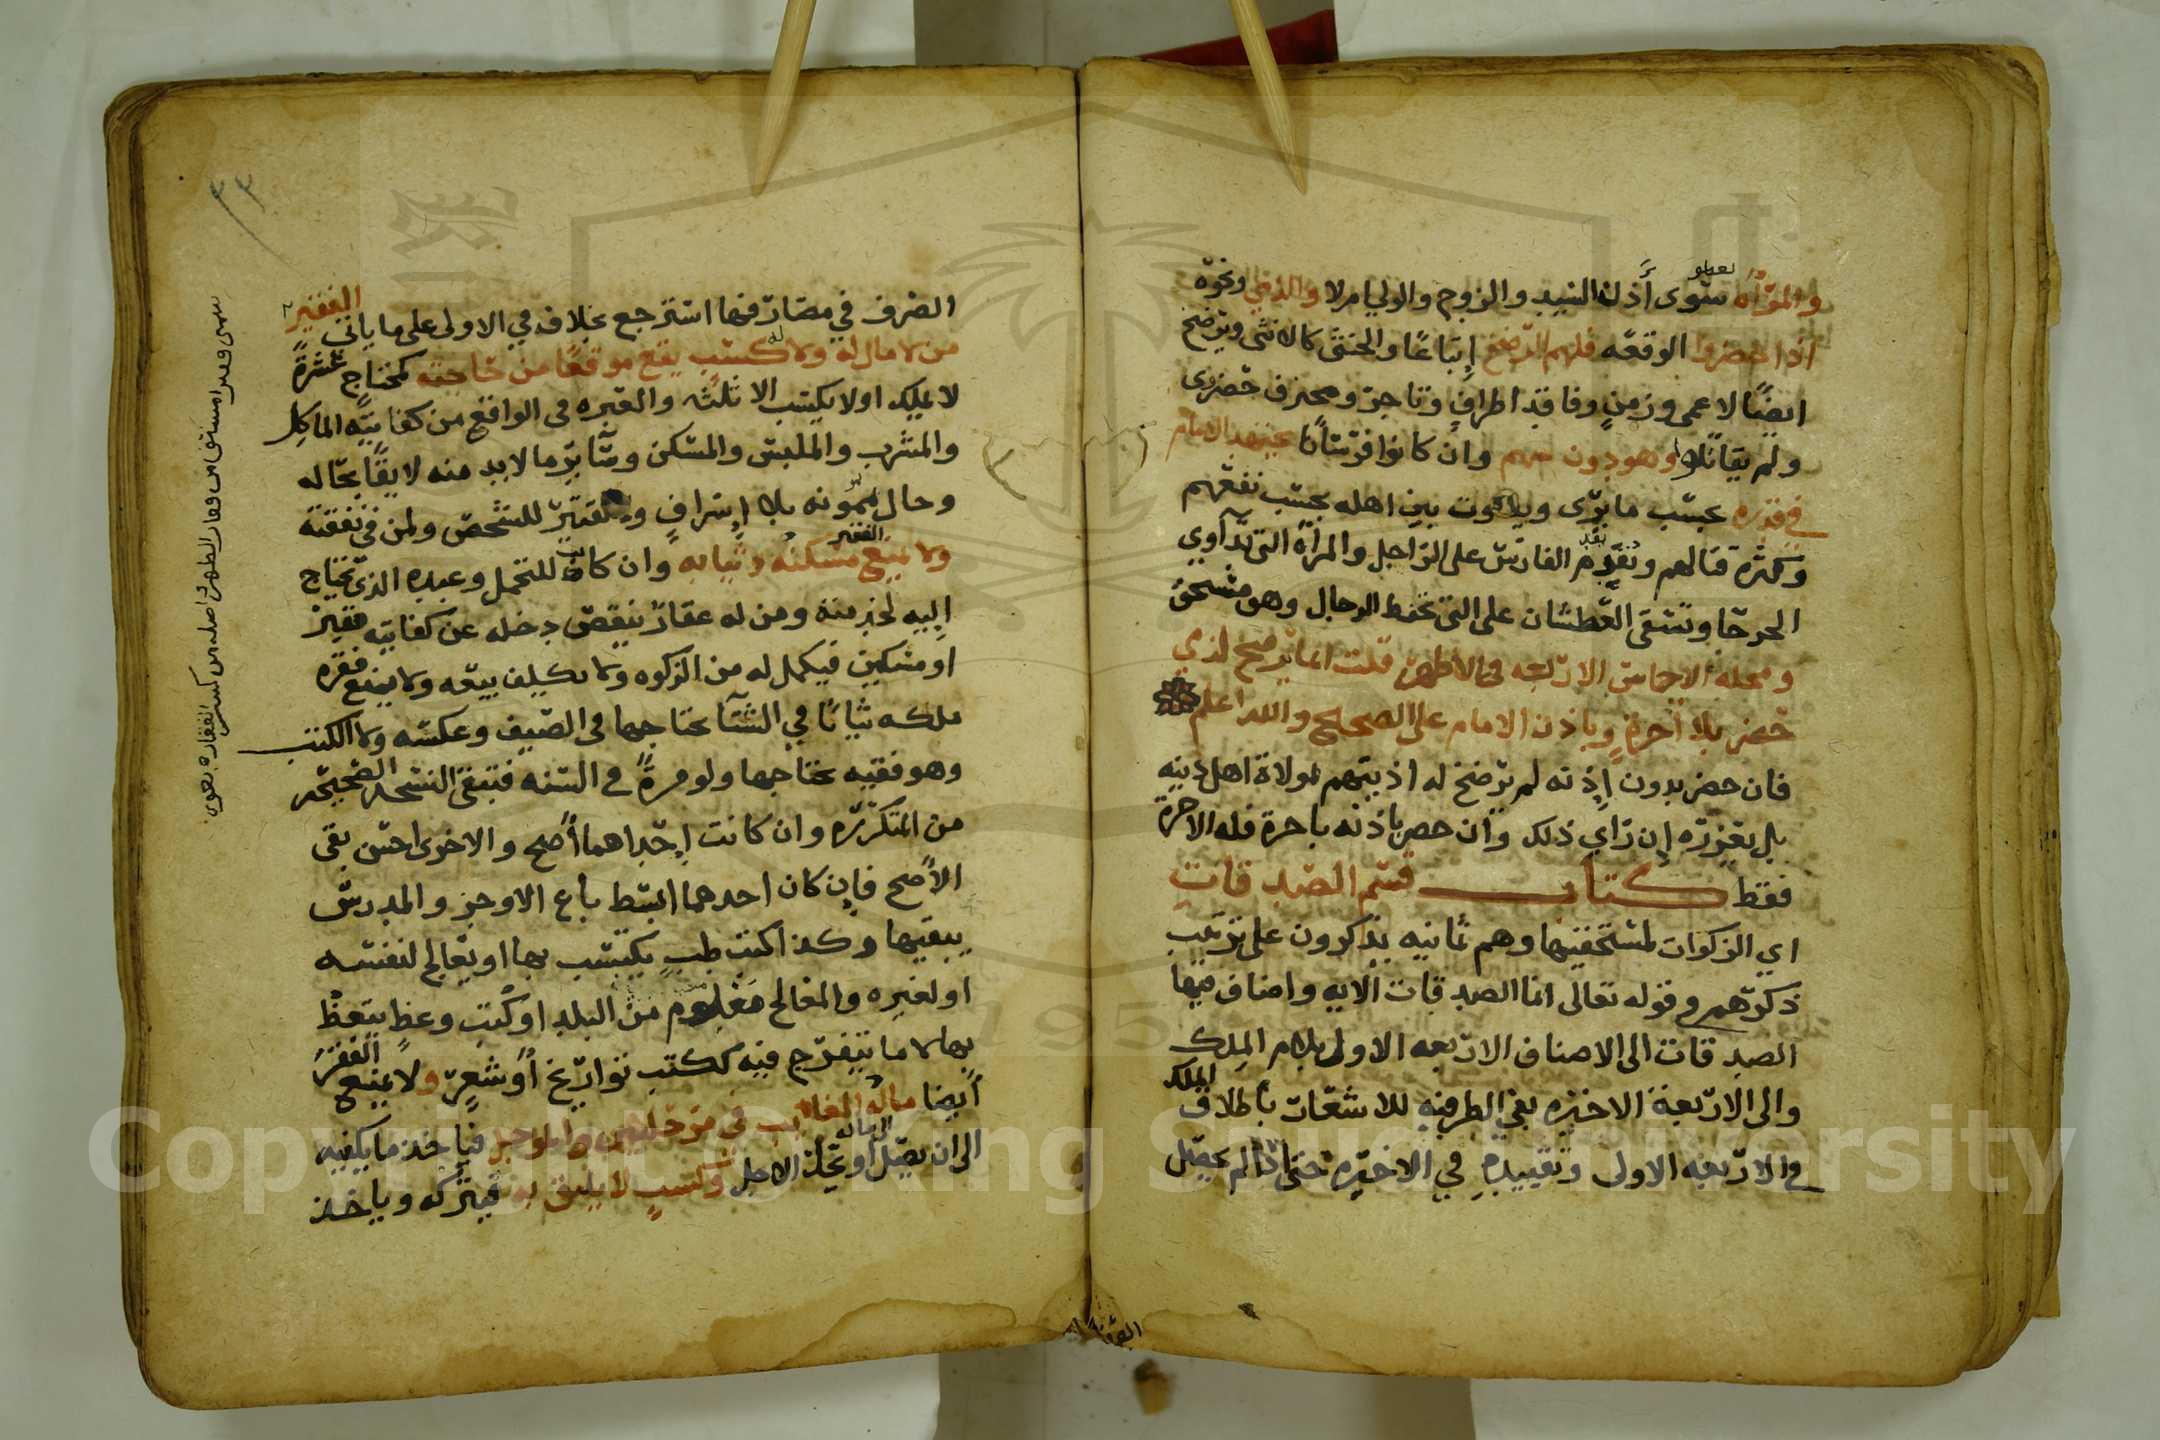 والمرأه سوى أذن السيد والزوج والولي ام لا والذمي ونحوه
اذا حضروا الوقعه فلهم الرضخ إتباعًا والخنثى كالانثى ويرضخ
ايضًا لاعمى وزمنٍ وفاقد اطرافٍ وتاجر ومحترف حضروى
ولم يقاتلوا وهو دون سهم وان كانوا فرسانًا يجتهد الامام
في قدره بحسب ما يرى ويفاوت بين اهله بحسب نفعهم
وكثرة قتالهم ويقدم الفارس على الراجل والمرأة التي تدآوي
الجرحا وتسقى العطشان على التي تحفظ الرحال وهو مستحق
ومحله الاخماس الاربعه في الاظهر قلت انما يرضخ لذمي
حضر بلا أجرةٍ وباذن الامام على الصحيح والله اعلم
فان حضر بدون إذنه لم يرضخ له اذ يتهم لموالاة اهل دينه
بل يعزره إن رأي ذلك وان حضر باذنه باجرة فله الاجرة
فقط كتاب قسم الصدقات
اي الزكوات لمستحقيها وهم ثمانيه يذكرون على ترتيب
ذكرهم في قوله تعالى انما الصدقات الآيه واضاف فيها
الصدقات الى الاصناف الاربعه الاولى بلام الملك
والى الاربعة الاخيره بفي الظرفيه للاشعار بأطلاق الملك
في الاربعه الاولى وتقييده في الاخيره حتى اذا لم يحصل
٣٣
الصرف في مصارفها استرجع بخلافه في الاولى على ما ياتي الفقير
من لا مال له ولا كسب له يقع موقعًا من حاجته كمحتاج عشرةً
لا يملك اولا يكتسب الا ثلثه والعبره في الواقع من كفايته الماكل
والمشرب والملبس والمسكن وسآير ما لا بد منه لايقًا بحاله
وحال ممونه بلا إسرافٍ ولا تقتير للشخص ولمن في نفقته
ولا يمنع الفقير مسكنه وثيابه وان كانت للتجمل وعبده الذي يحتاج
إليه لخدمته ومن له عقار ينقص دخله عن كفايته فقير
او مسكين فيكمل له من الزكوه ولا يكلف بيعه ولا يمنع فقره
ملكه ثيابًا في الشتآ يحتاجها في الصيف وعكسه ولا الكتب
وهو فقيه يحتاجها ولو مرةً في السنه فتبقى النسخه الصحيحه
من المتكرره وان كانت إحداهما أصح والاخرى احسن بقى
الأصح فإن كان احدهما ابسط باع الاوجز والمدرس
يبقيها وكذا كتب طبٍ يكتسب بها او يعالج لنفسه
او لغيره والمعالج معدوم من البلد او كتب وعظٍ يتعظ
بها لا ما يتفرج فيه ككتب تواريخ أو شعرٍ ولا يمنع الفقر
أيضا ماله الغائب في مرحلتين والموجل فيأخذ ما يكفيه
الى ان يصل ماله أو يحل الاجل وكسب لا يليق به فيتركه وياخذ
Copyright © King Saud University
1957